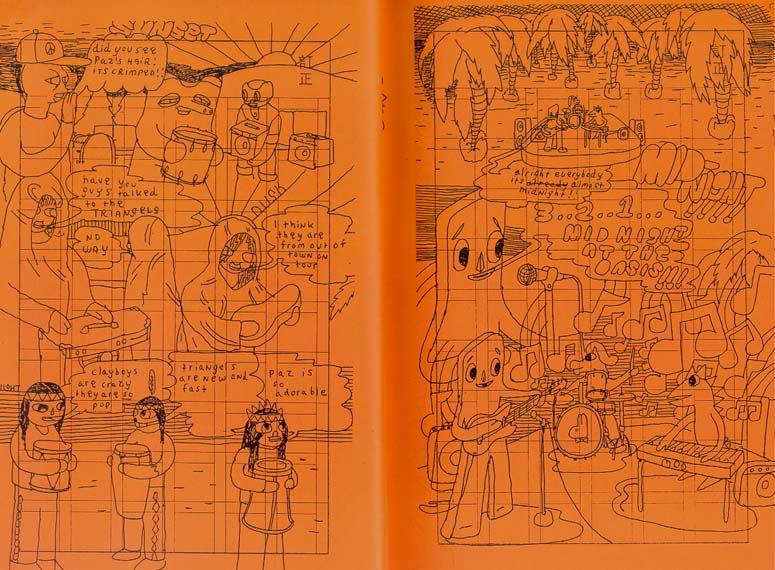 SUNSET
did you see
Paz's HAIR!
its CRIMPED!!
訂
正
have you
guys talked
to the
TRIANGELS
NO
WAY
I think
they are
from out of
town on
tour
clayboys
are crazy
they are so
pop
triangels
are new and
fast
Paz is
so
adorable
alright everybody
its already almost
midnight!!
MIDNIGHT!!!
3...2...1...
MIDNIGHT
AT THE
OASIS!!!!